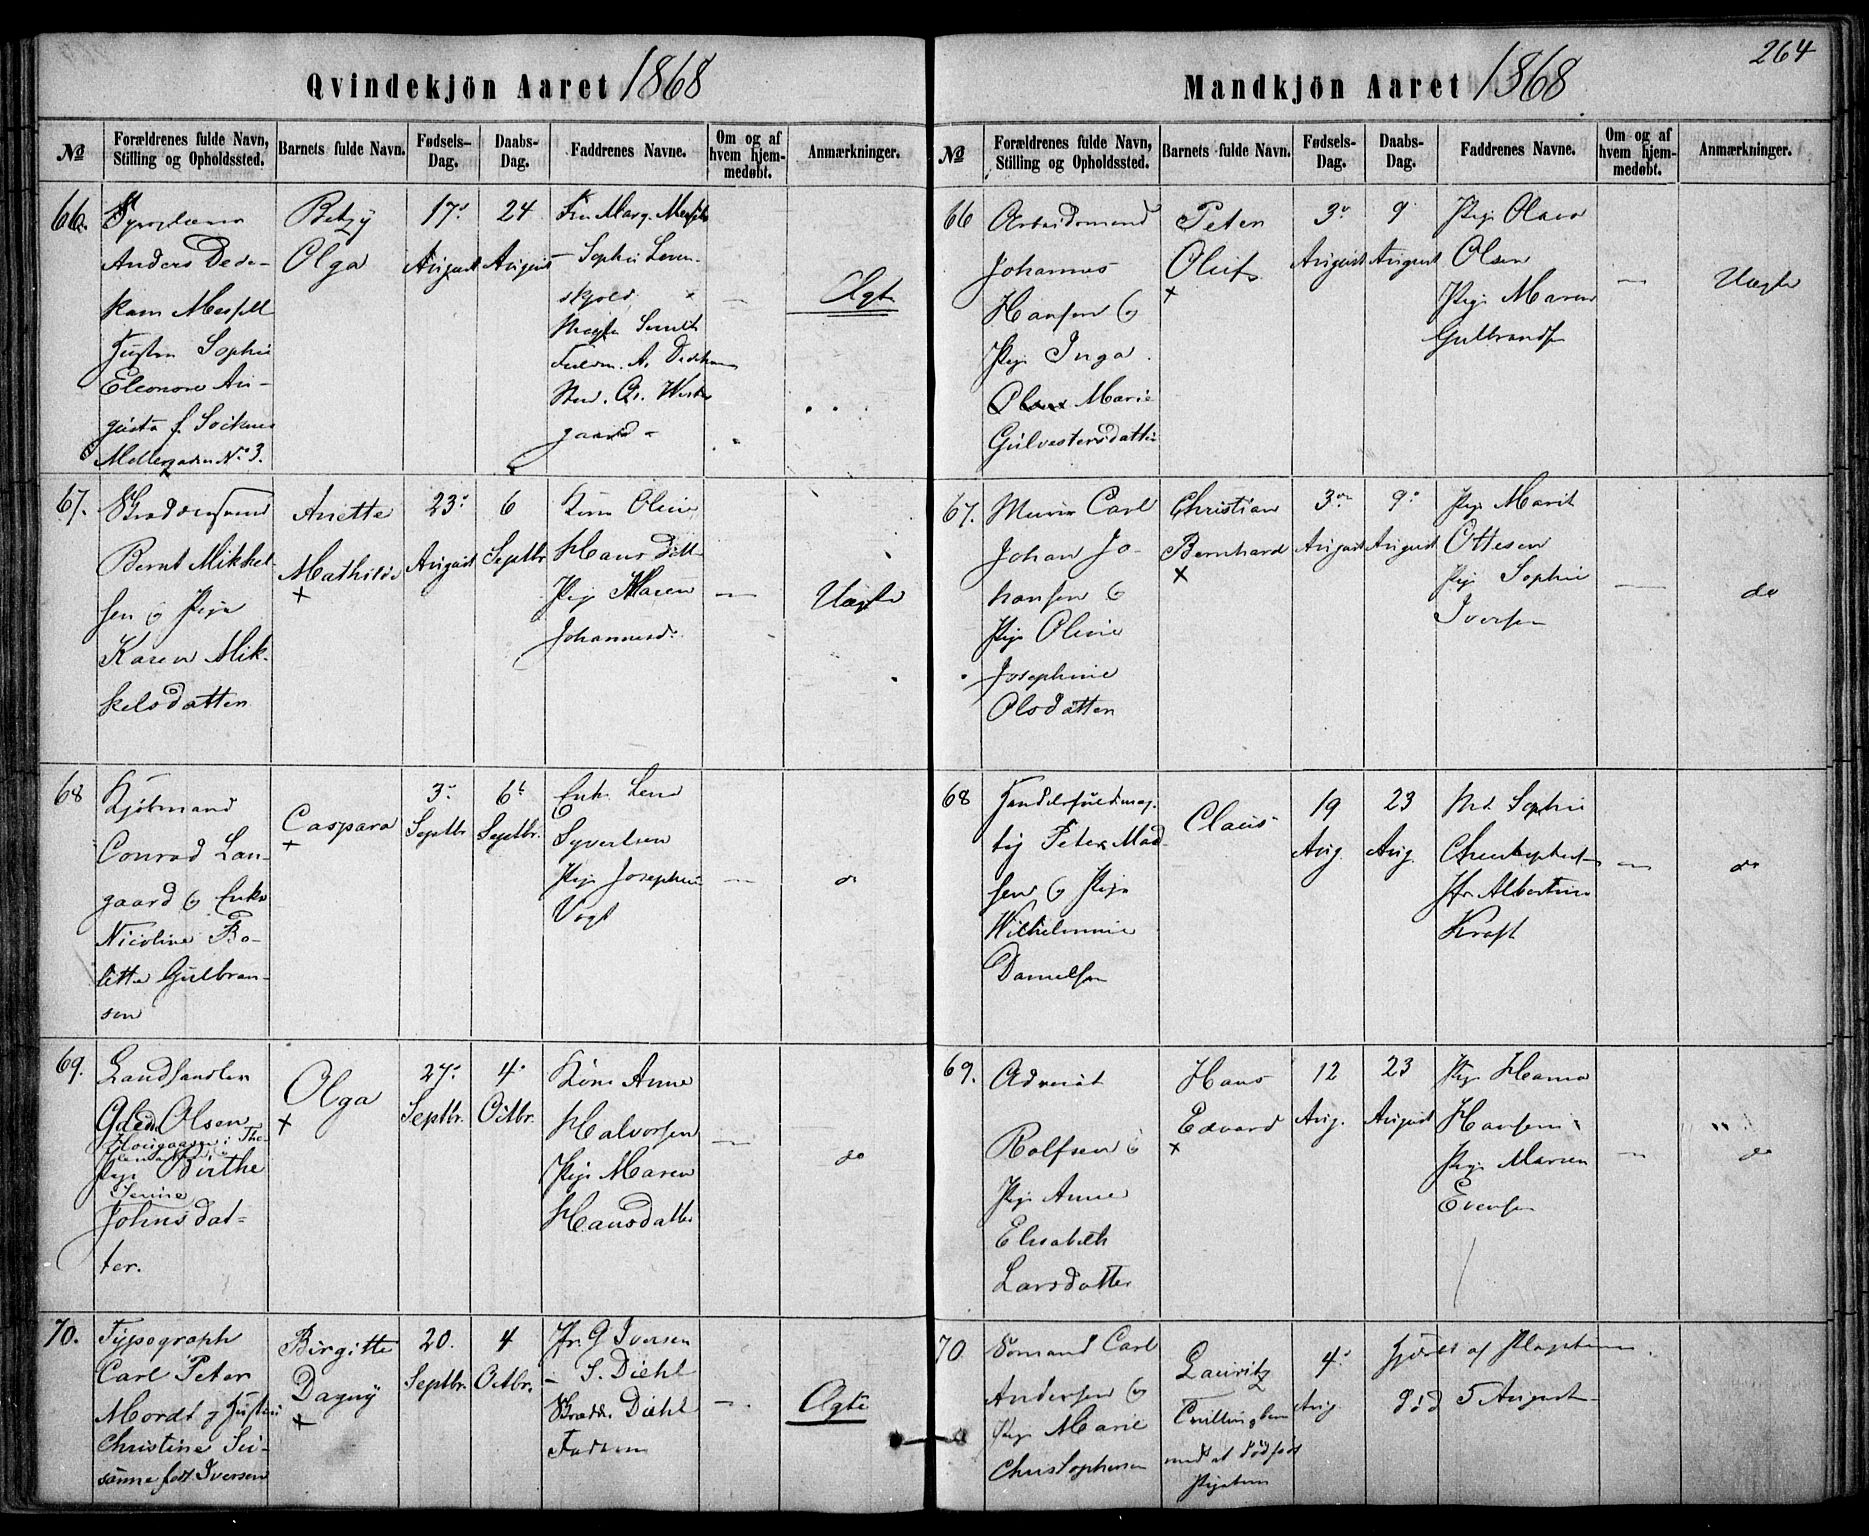 Qvindekjön Aaret 1868
№
Forældrenes fulde Navn,
Stilling og Opholdssted.
Barnets fulde Navn.
Fødsels-
Dag.
Daabs-
Dag.
Faddrenes Navne.
Om og af
hvem hjem-
medøbt.
Anmærkninger.
66.
Anders Dede-
kam
Sophie
Eleonore Au-
gusta f.
Møllergaden No 3.
Betzy
Olga
17de
August
24
August
Sophie Løven-
skjold
A. Dedekam
gaard
Ægte
67.
Bernt Mikkel-
sen og Pige
Karen Mik-
kelsdatter
Anette
Mathilde
×
23de
August
6
Septbr
Kone Oline
Hansdatt-
Pige Maren
Johannesd.
—
Uægte
68
Kjöbmand
Conrad Lan-
gaard og Enke
Nicoline Bo-
lette Gulbran-
sen
Caspara
×
3de
Septbr
6te
Septbr.
Enke Lene
Syvertsen
Pige Josephine
Vogt
—
do
69.
Landhandler
Olsen
Pige Birthe
Serine
Johnsdat-
ter.
Olga
×
27de
Septbr.
4de
Octbr.
Kone Anne
Halvorsen
Pige Maren
Hansdatter
—
do
70.
Typograph
Carl Peter
Mordt og Hustru
Christine Su-
sanne født Iversen
Birgitte
Dagny
×
20.
Septbr.
4
Octbr.
Fr. G. Iversen
— S. Diehl
Diehl
Faderen
—
Ægte
264
Mandkjön Aaret 1868
№
Forældrenes fulde Navn,
Stilling og Opholdssted.
Barnets fulde Navn.
Fødsels-
Dag.
Daabs-
Dag.
Faddrenes Navne.
Om og af
hvem hjem-
medøbt.
Anmærkninger.
66
Arbeidsmand
Johannes
Hansen og
Pige Inga
Marie
Gulvestersdatter
Peter
Oluf
×
3de
August
9
August
Pige Olava
Olsen
Pige Maren
Gulbrandsen
—
Uægte
67.
Murer Carl
Johan Jo-
hansen og
Pige Oline
Josephine
Olsdatter
Christian
Bernhard
×
3die
August
9de
August
Pige Marit
Ottesen
Pige Sophie
Iversen
—
do
68
Handelsfuldmæg-
tig Peter Mad-
sen og Pige
Wilhelmine
Danielsen
Claus
19
Aug.
23
Aug.
Md. Sophie
Christophersen
Jfr Albertine
Kraft
—
do
69.
Advocat
Rolfsen og
Pige Anne
Elisabeth
Larsdatter
Hans
Edvard
×
12
Aug.
23
August
Pige Hanna
Hansen
Pige Maren
Evensen
—
do
70
Sømand Carl
Andersen og
Pige Marie
Christophersen
Lauritz
Tvillingbarn
med et dødfødt
Pigebarn
4de
Aug
hjemd. af
død 5 August